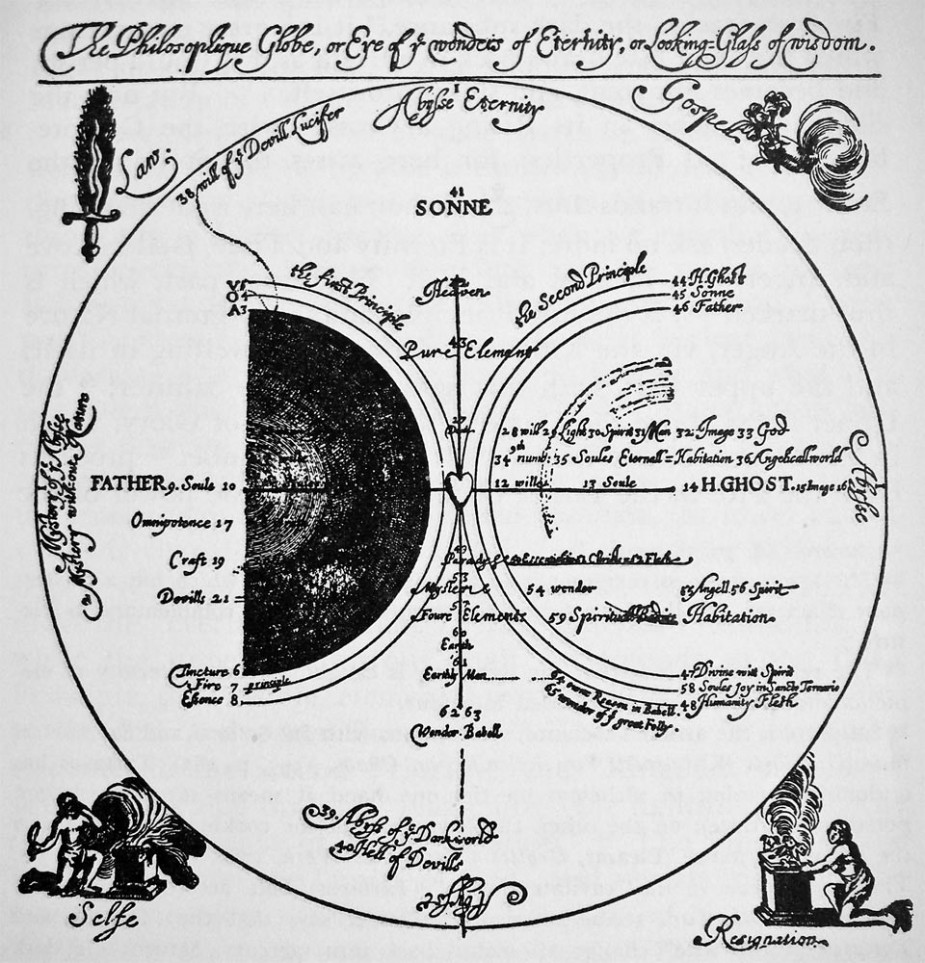 The Philosophique Globe, or Eye of yᵉ wonders of Eternity, or Looking=Glass of wisdom.
Abysse 1 Eternity
Law:
Gospell
38 will of yᵉ Devill Lucifer
41
SONNE
the first Principle
Heaven
the Second Principle
44 H. Ghost
45 Sonne
46 Father
V5
O4
A3
43
Pure Element
28 will 29 Light 30 Spirit 31 Man 32 Image 33 God
34th numb: 35 Soules Eternall=Habitation 36 Angelicall world
FATHER 9. Soule 10
12 will
13 Soule
14 H. GHOST. 15 Image 16
Abysse
2 Mystery without Manno
Omnipotence 17
Craft 19
Devills 21
Mysterie
54 wonder
Angell 56 Spirit
Foure Elements
59 Spirituall
Habitation
60
Earth
61
Earthly Man
Tincture 6
Fire 7 principle
Essence 8
64 from Reason in Babell
65 wonder of yᵉ great Folly
47 Divine will Spirit
58 Soules Joy in Sancto Ternario
48 Humanity Flesh
62 63
Wonder Babell
39. Abysse of yᵉ Darkworld
40 Hell of Devills
Abysse
Selfe
Resignation